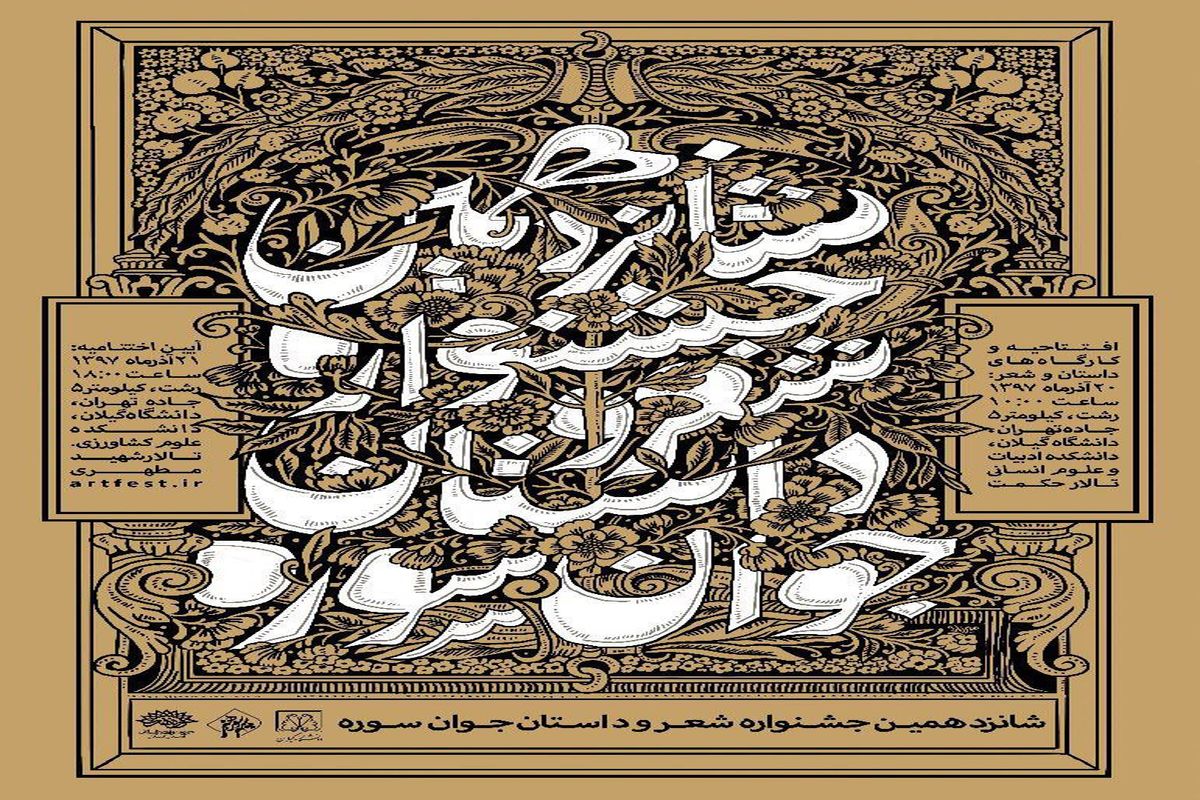 شانزدهمین
جشنواره
شعر و
داستان
جوان سوره
افتتاحیه و
کارگاه‌های
داستان و شعر
۲۰ آذرماه ۱۳۹۷
ساعت ۱۰:۰۰
رشت، کیلومتر۵
جاده تهران،
دانشگاه گیلان،
دانشکده ادبیات
و علوم انسانی
تالار حکمت
آیین اختتامیه:
۲۱ آذرماه ۱۳۹۷
ساعت ۱۸:۰۰
رشت، کیلومتر۵
جاده تهران،
دانشگاه گیلان،
دانشکده
علوم کشاورزی.
تالار شهید
مطهری
artfest.ir
شانزدهمین جشنواره شعر و داستان جوان سوره